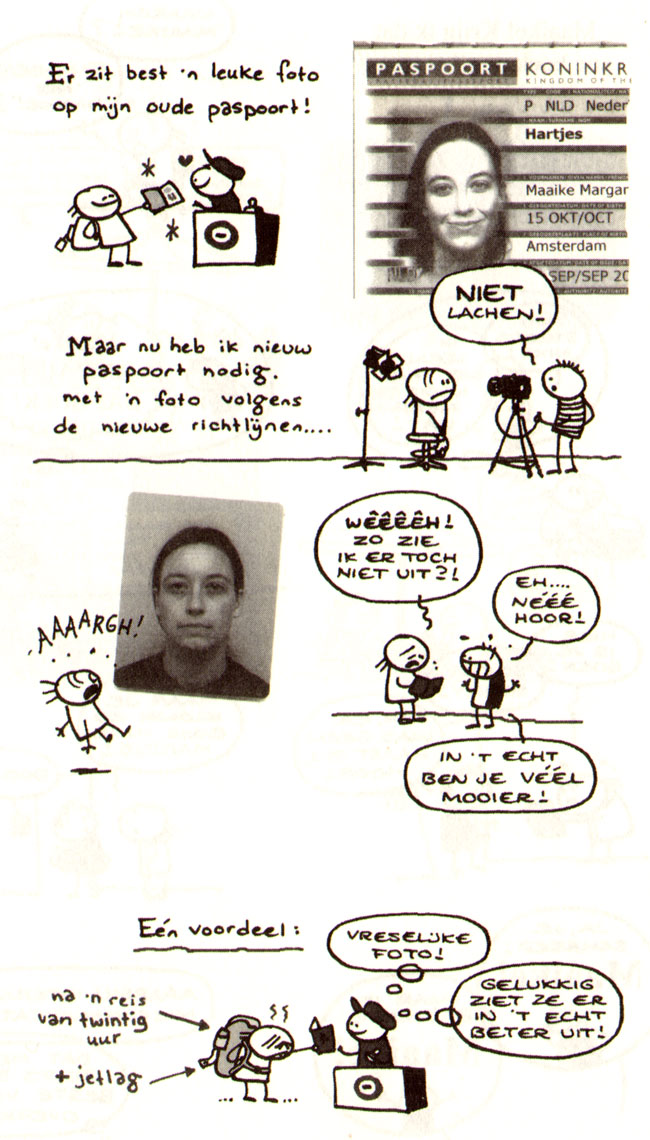 Er zit best 'n leuke foto
op mijn oude paspoort!
PASPOORT KONINKR
KINGDOM OF TH
P NLD Neder
Hartjes
Maaike Margar
15 OKT/OCT
Amsterdam
SEP/SEP 20
NIET
LACHEN!
Maar nu heb ik nieuw
paspoort nodig.
met 'n foto volgens
de nieuwe richtlijnen....
AAAARGH!
WÊÊÊÊH!
ZO ZIE
IK ER TOCH
NIET UIT?!
EH....
NÉÉÉ
HOOR!
IN 'T ECHT
BEN JE VÉÉL
MOOIER!
Eén voordeel:
VRESELIJKE
FOTO!
GELUKKIG
ZIET ZE ER
IN 'T ECHT
BETER UIT!
na 'n reis
van twintig
uur
+ jetlag